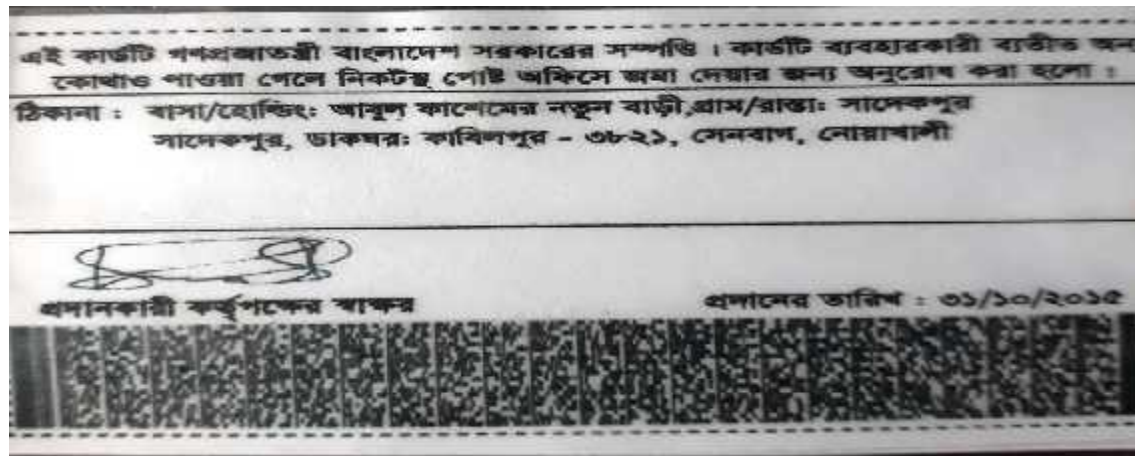 এই কার্ডটি গণপ্রজাতন্ত্রী বাংলাদেশ সরকারের সম্পত্তি । কার্ডটি ব্যবহারকারী ব্যতীত অন্য
কোথাও পাওয়া গেলে নিকটস্থ পোষ্ট অফিসে জমা দেয়ার জন্য অনুরোধ করা হলো ।
ঠিকানা : বাসা/হোল্ডিং: আবুল কাশেমের নতুন বাড়ী,গ্রাম/রাস্তা: সাদেকপুর
সাদেকপুর, ডাকঘর: কাবিলপুর - ৩৮২১, সেনবাগ, নোয়াখালী
প্রদানকারী কর্তৃপক্ষের স্বাক্ষর
প্রদানের তারিখ : ৩১/১০/২০১৫